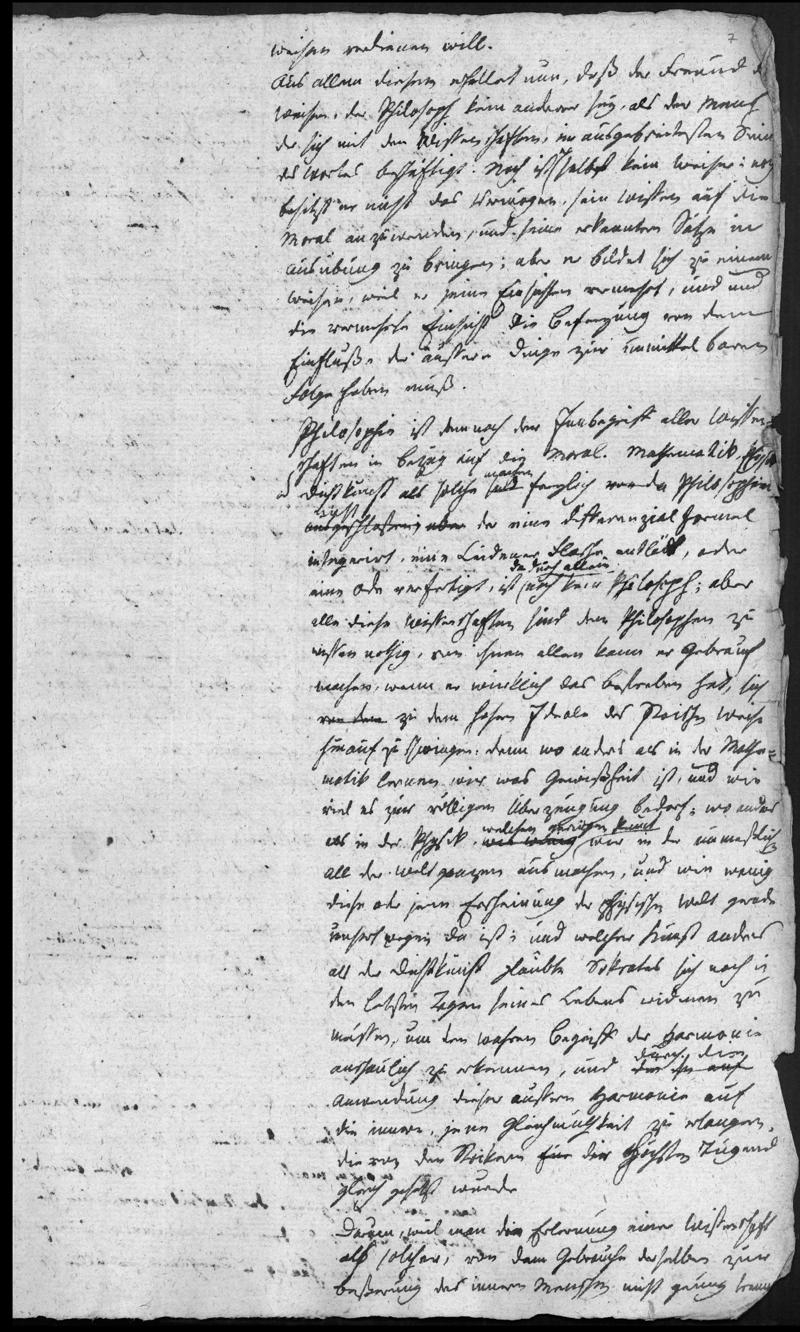 7
weisen verdienen will.
Aus allem diesem erhellet nun, daß der Freund d
Weisen, der Philosoph kein anderer sey, als der Mensch
der sich mit den Wissenschaften, im ausgebreitetsten Sinn
des Wortes beschäftigt. Noch ist selbst kein Weiser: noch
besitzt er nicht das Vermögen, sein Wissen auf die
Moral anzuwenden, und seine erkannten Sätze in
Ausübung zu bringen; aber er bildet sich zu einem
Weisen, weil er seine Einsichten vermehrt, und und
die vermehrte Einsicht die Befreyung von dem
Einfluße der äussern Dinge zur unmittelbaren
Folge haben muß.
Philosophie ist demnach der Innbegriff aller Wissen-
schaften in Bezug auf die Moral. Mathematik, Physik
Dichtkunst als solche machen sind freylich von der Philosophie
nicht
ausgeschlossen aber der eine Differenzial Formel
integrirt, eine Leidener Flasche entlädt, oder
dadurch allein
eine Ode verfertigt, ist noch kein Philosoph; aber
alle diese Wissenschaften sind dem Philosophen zu
wissen nöthig, von ihnen allen kann er Gebrauch
machen, wenn er wirklich das Bestreben hat, sich
von dem zu dem hohen Ideale des Stoischen Weisen
hinauf zu schwingen. denn wo anders als in der Mathe=
matik lernen wir was Gewißheit ist, und wie
viel es zur völligen Überzeugung bedarf; wo anders
als in der Physik, welchen geringen Punct
was wenig wir in der unermeßlichen
All der Welt ganzen ausmachen, und wie wenig
diese oder jene Erscheinung der physischen Welt gerade
unsert wegen da ist; und welcher Kunst anders
als der Dichtkunst glaubte Sokrates sich noch in
den letzten Tagen seines Lebens widmen zu
müssen, um den wahren Begriff der Harmonie
anschaulich zu erkennen, und durch die
Anwendung dieser äussern Harmonie auf
die innere, jene Gleichmüthigkeit zu erlangen,
die von den Stoikern für die höchste Tugend
gleich gesetzt wurde
Darum, weil man die Erlernung einer Wissenschaft
als solcher, von dem Gebrauche derselben zur
Beßerung des innern Menschen nicht genug trenn